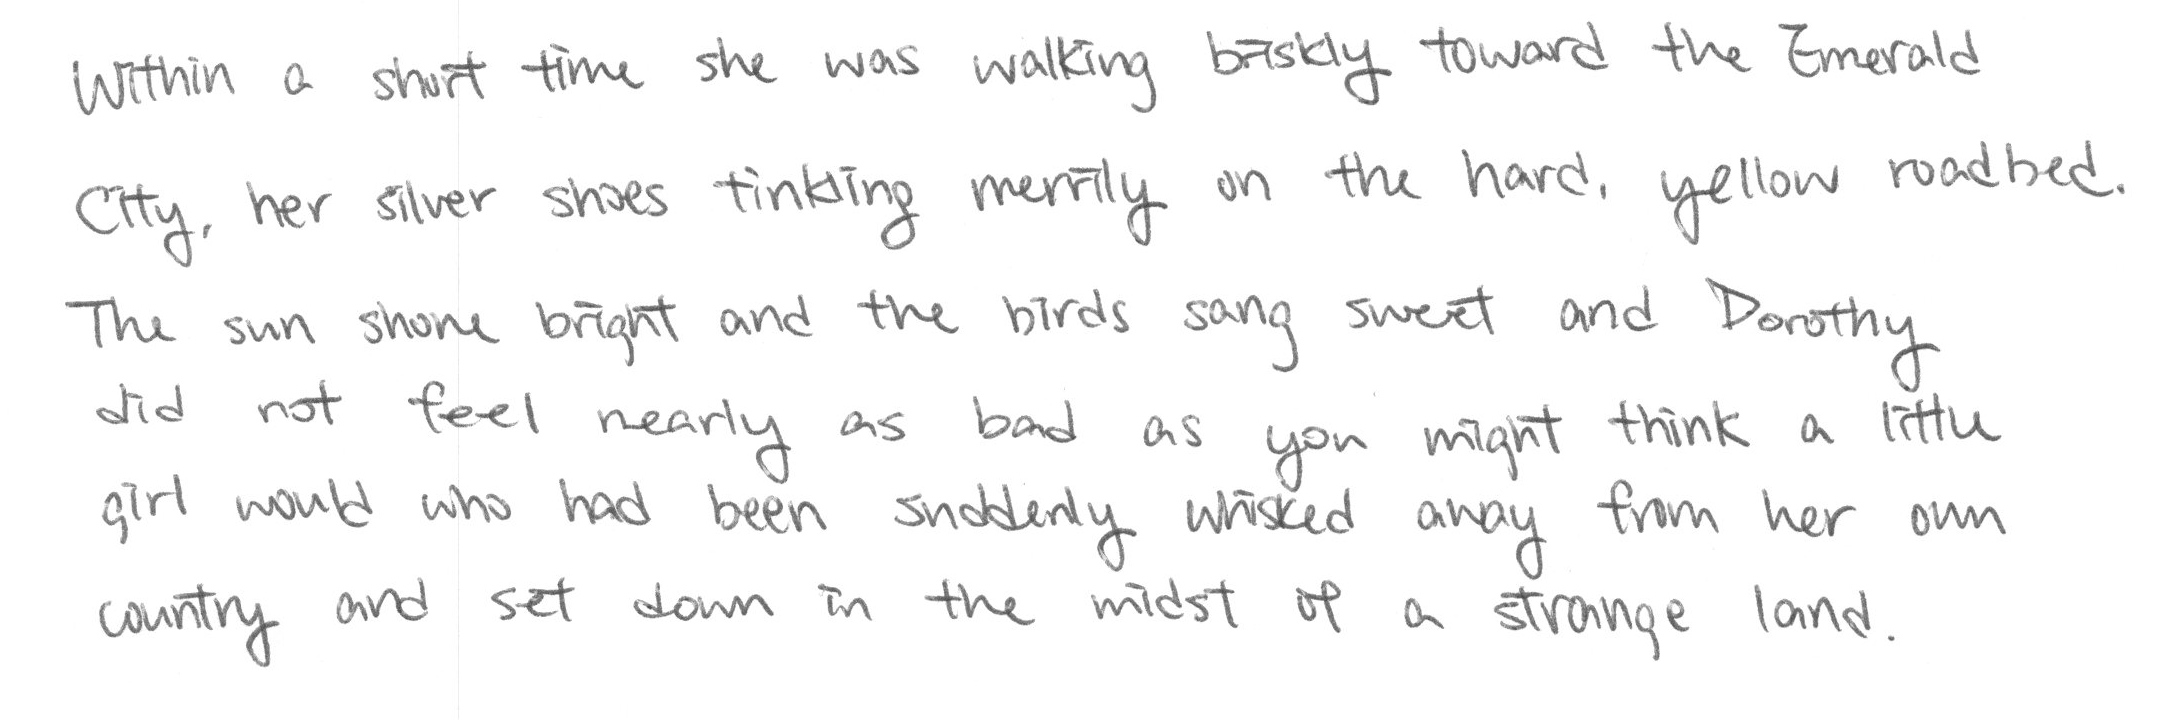 Within a short time she was walking briskly toward the Emerald
City, her silver shoes tinkling merrily on the hard, yellow roadbed.
The sun shone bright and the birds sang sweet and Dorothy
did not feel nearly as bad as you might think a little
girl would who had been suddenly whisked away from her own
country and set down in the midst of a strange land.